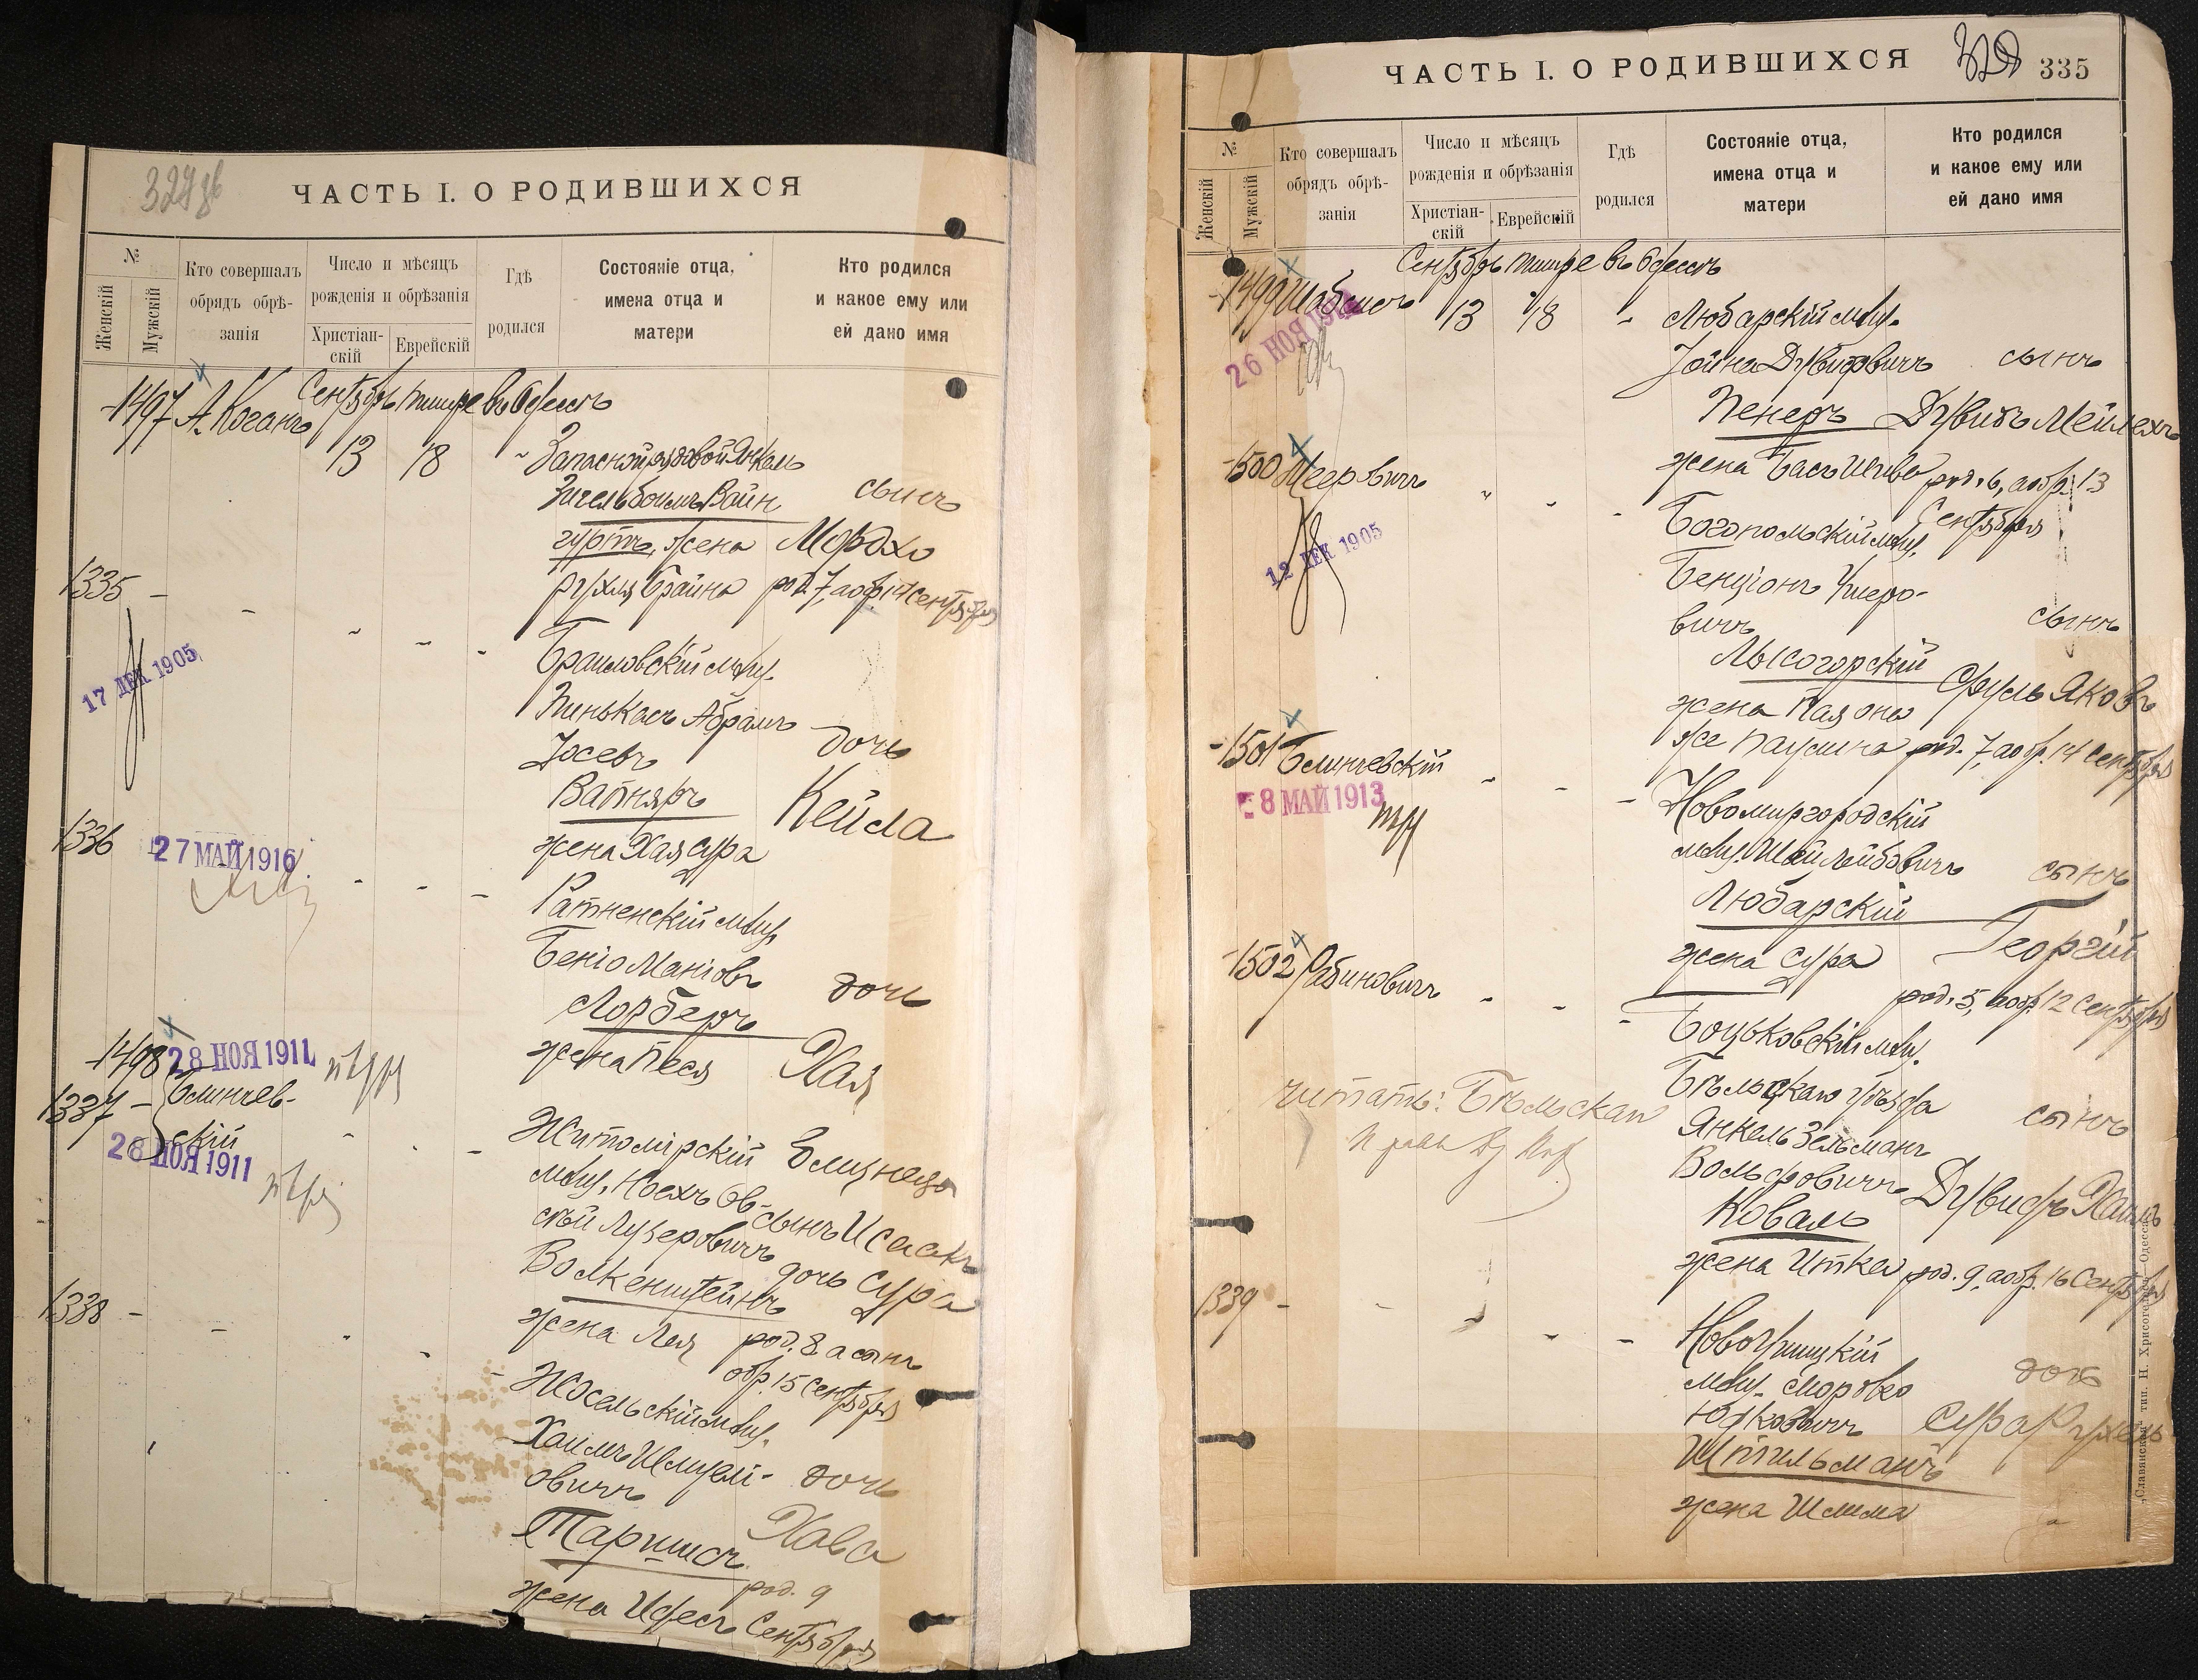 327 об
ЧАСТЬ I. О РОДИВШИХСЯ
№
Женскій
Мужскій
Кто совершалъ
обрядъ обрѣ-
занія
Число и мѣсяцъ
рожденія и обрѣзанія
Христіан-
скій
Еврейскій
Гдѣ
родился
Состояніе отца,
имена отца и
матери
Кто родился
и какое ему или
ей дано имя
Сентябрь тишре въ Одессѣ
-1497 А. Коганъ 13 18 - Запасной рядовой Янкель
Зигельбоимъ Вайн сынъ
гуртъ, жена Мордхо
Рухля Брайна род. 7, а обр. 14 Сентября
1335 - - - - -
17 ДЕК 1905
Браиловскій мѣщ.
Пинькасъ Абрамъ
Іосевъ дочь
Вапняръ Кейла
жена Хая Сура
1336 - 27 МАЙ 1916 - - -
Ратненскій мѣщ.
Беніо Маніовъ дочь
Лорберъ
жена Песя Хая
-1498 28 НОЯ 1911
1337 - Блинчев-
скій
28 НОЯ 1911
Житомірскій Близнецы
мѣщ. Ноехъ Ов- сынъ Исаакъ
сѣй Лузеровичъ дочь Сура
Волкенштейнъ
жена Лея род. 8, а сынъ
обр. 15 Сентября
1338 - - - - -
мѣщ.
Хаимъ Шмулі-
овичъ дочь
Таршисъ Хава
жена Идесъ род. 9
Сентября
ЧАСТЬ I. О РОДИВШИХСЯ
335
№
Женскій
Мужскій
Кто совершалъ
обрядъ обрѣ-
занія
Число и мѣсяцъ
рожденія и обрѣзанія
Христіан-
скій
Еврейскій
Гдѣ
родился
Состояніе отца,
имена отца и
матери
Кто родился
и какое ему или
ей дано имя
Сентябрь тишре въ Одессѣ
-1499 Шабсисъ 13 18 - Любарскій мѣщ.
26 НОЯ
Іойна Дувидовичъ сынъ
Пекеръ Дувидъ Мейлехъ
жена Бася Шива род. 6, а обр. 13
Сентября
-1500 Мееровичъ " - -
12 ДЕК 1905
Богопольскій мѣщ.
Бенціонъ Ушеро-
вичъ сынъ
Лысогорскій
жена Хая она Сруль Яковъ
же Паулина род. 7, а обр. 14 Сентября
-1501 Блинчевскій - - -
28 МАЙ 1913
Новомиргородскій
мѣщ. Шая Лейбовичъ сынъ
Любарскій
жена Сура Георгій
род. 5, а обр. 12 Сентября
-1502 Рабиновичъ - - -
Боцьковскій мѣщ.
Бѣльскаго уѣзда
Янкель Зельманъ сынъ
Вольфовичъ Дувидъ Хаимъ
Коваль
жена Итка род. 9, а обр. 16 Сентября
читать: Бѣльскаго
1339 - - - - -
Новоушицкій
мѣщ. Мордко дочь
Юдковичъ Сура Рухель
Штильманъ
жена Шлима
„Славянская“ тип. Н. Хрисогелосъ—Одесса.